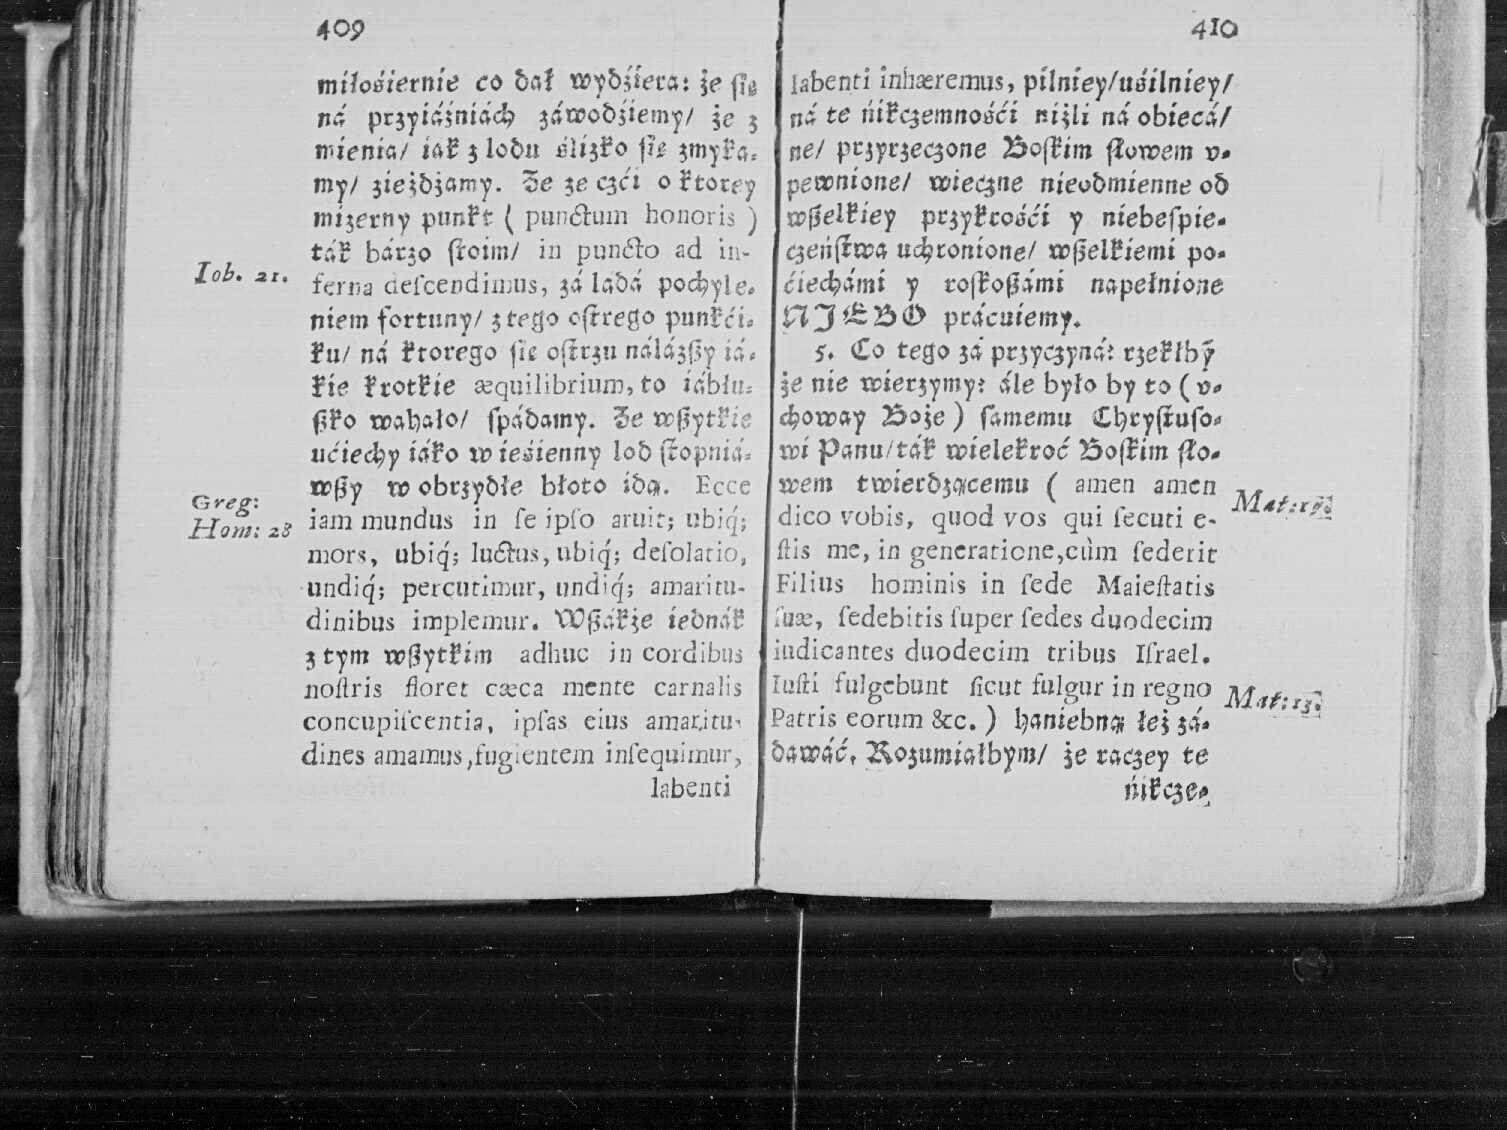 409
miłośiernie co dał wydźiera: że się
ná przyiáźniách záwodźiemy/ że z
mienia/ iak z lodu ślizko się zmyka-
my/ zieżdżamy. Że ze czći o ktorey
mizerny punkt ( punctum honoris )
ták bárzo ſtoim/ in puncto ad in-
Iob. 21.
ferna deſcendimus, zá ladá pochyle-
niem fortuny/ z tego oſtrego punkći-
ku/ ná ktorego się oſtrzu nálázſzy iá-
kie krotkie æquilibrium, to iábłu-
ſzko waháło/ ſpádamy. Że wſzytkie
ućiechy iáko w ieśienny lod ſtopniá-
wſzy w obrzydłe błoto idą. Ecce
Greg:
Hom: 28
iam mundus in ſe ipſo aruit; ubiq́;
mors, ubiq́; luctus, ubiq́; deſolatio,
undiq́; percutimur, undiq́; amaritu-
dinibus implemur. Wſzákże iednák
z tym wſzytkim adhuc in cordibus
noſtris floret cæca mente carnalis
concupiſcentia, ipſas eius amaritu-
dines amamus, fugientem inſequimur,
labenti
410
labenti inhæremus, pilniey/uśilniey/
ná te ńikczemnośći niżli ná obiecá/
ne/ przyrzeczone Boſkim ſłowem v-
pewnione/ wieczne nieodmienne od
wſzelkiey przykrośći y niebeſpie-
czeńſtwa uchronione/ wſzelkiemi po-
ćiechámi y roſkoſzámi napełnione
NIEBO prácuiemy.
5. Co tego zá przyczyná? rzekłby
że nie wierzymy? ále było by to ( v-
choway Boże ) ſamemu Chryſtuſo-
wi Panu/ták wielekroć Boſkim ſło-
wem twierdzącemu ( amen amen
Mat: 19.
dico vobis, quod vos qui ſecuti e-
ſtis me, in generatione,cùm ſederit
Filius hominis in ſede Maieſtatis
ſuæ, ſedebitis ſuper ſedes duodecim
iudicantes duodecim tribus Iſrael.
Iuſti fulgebunt ſicut fulgur in regno
Mat: 13.
Patris eorum &c. ) haniebną łeż zá-
dawáć. Rozumiałbym/ że raczey te
ńikcze-